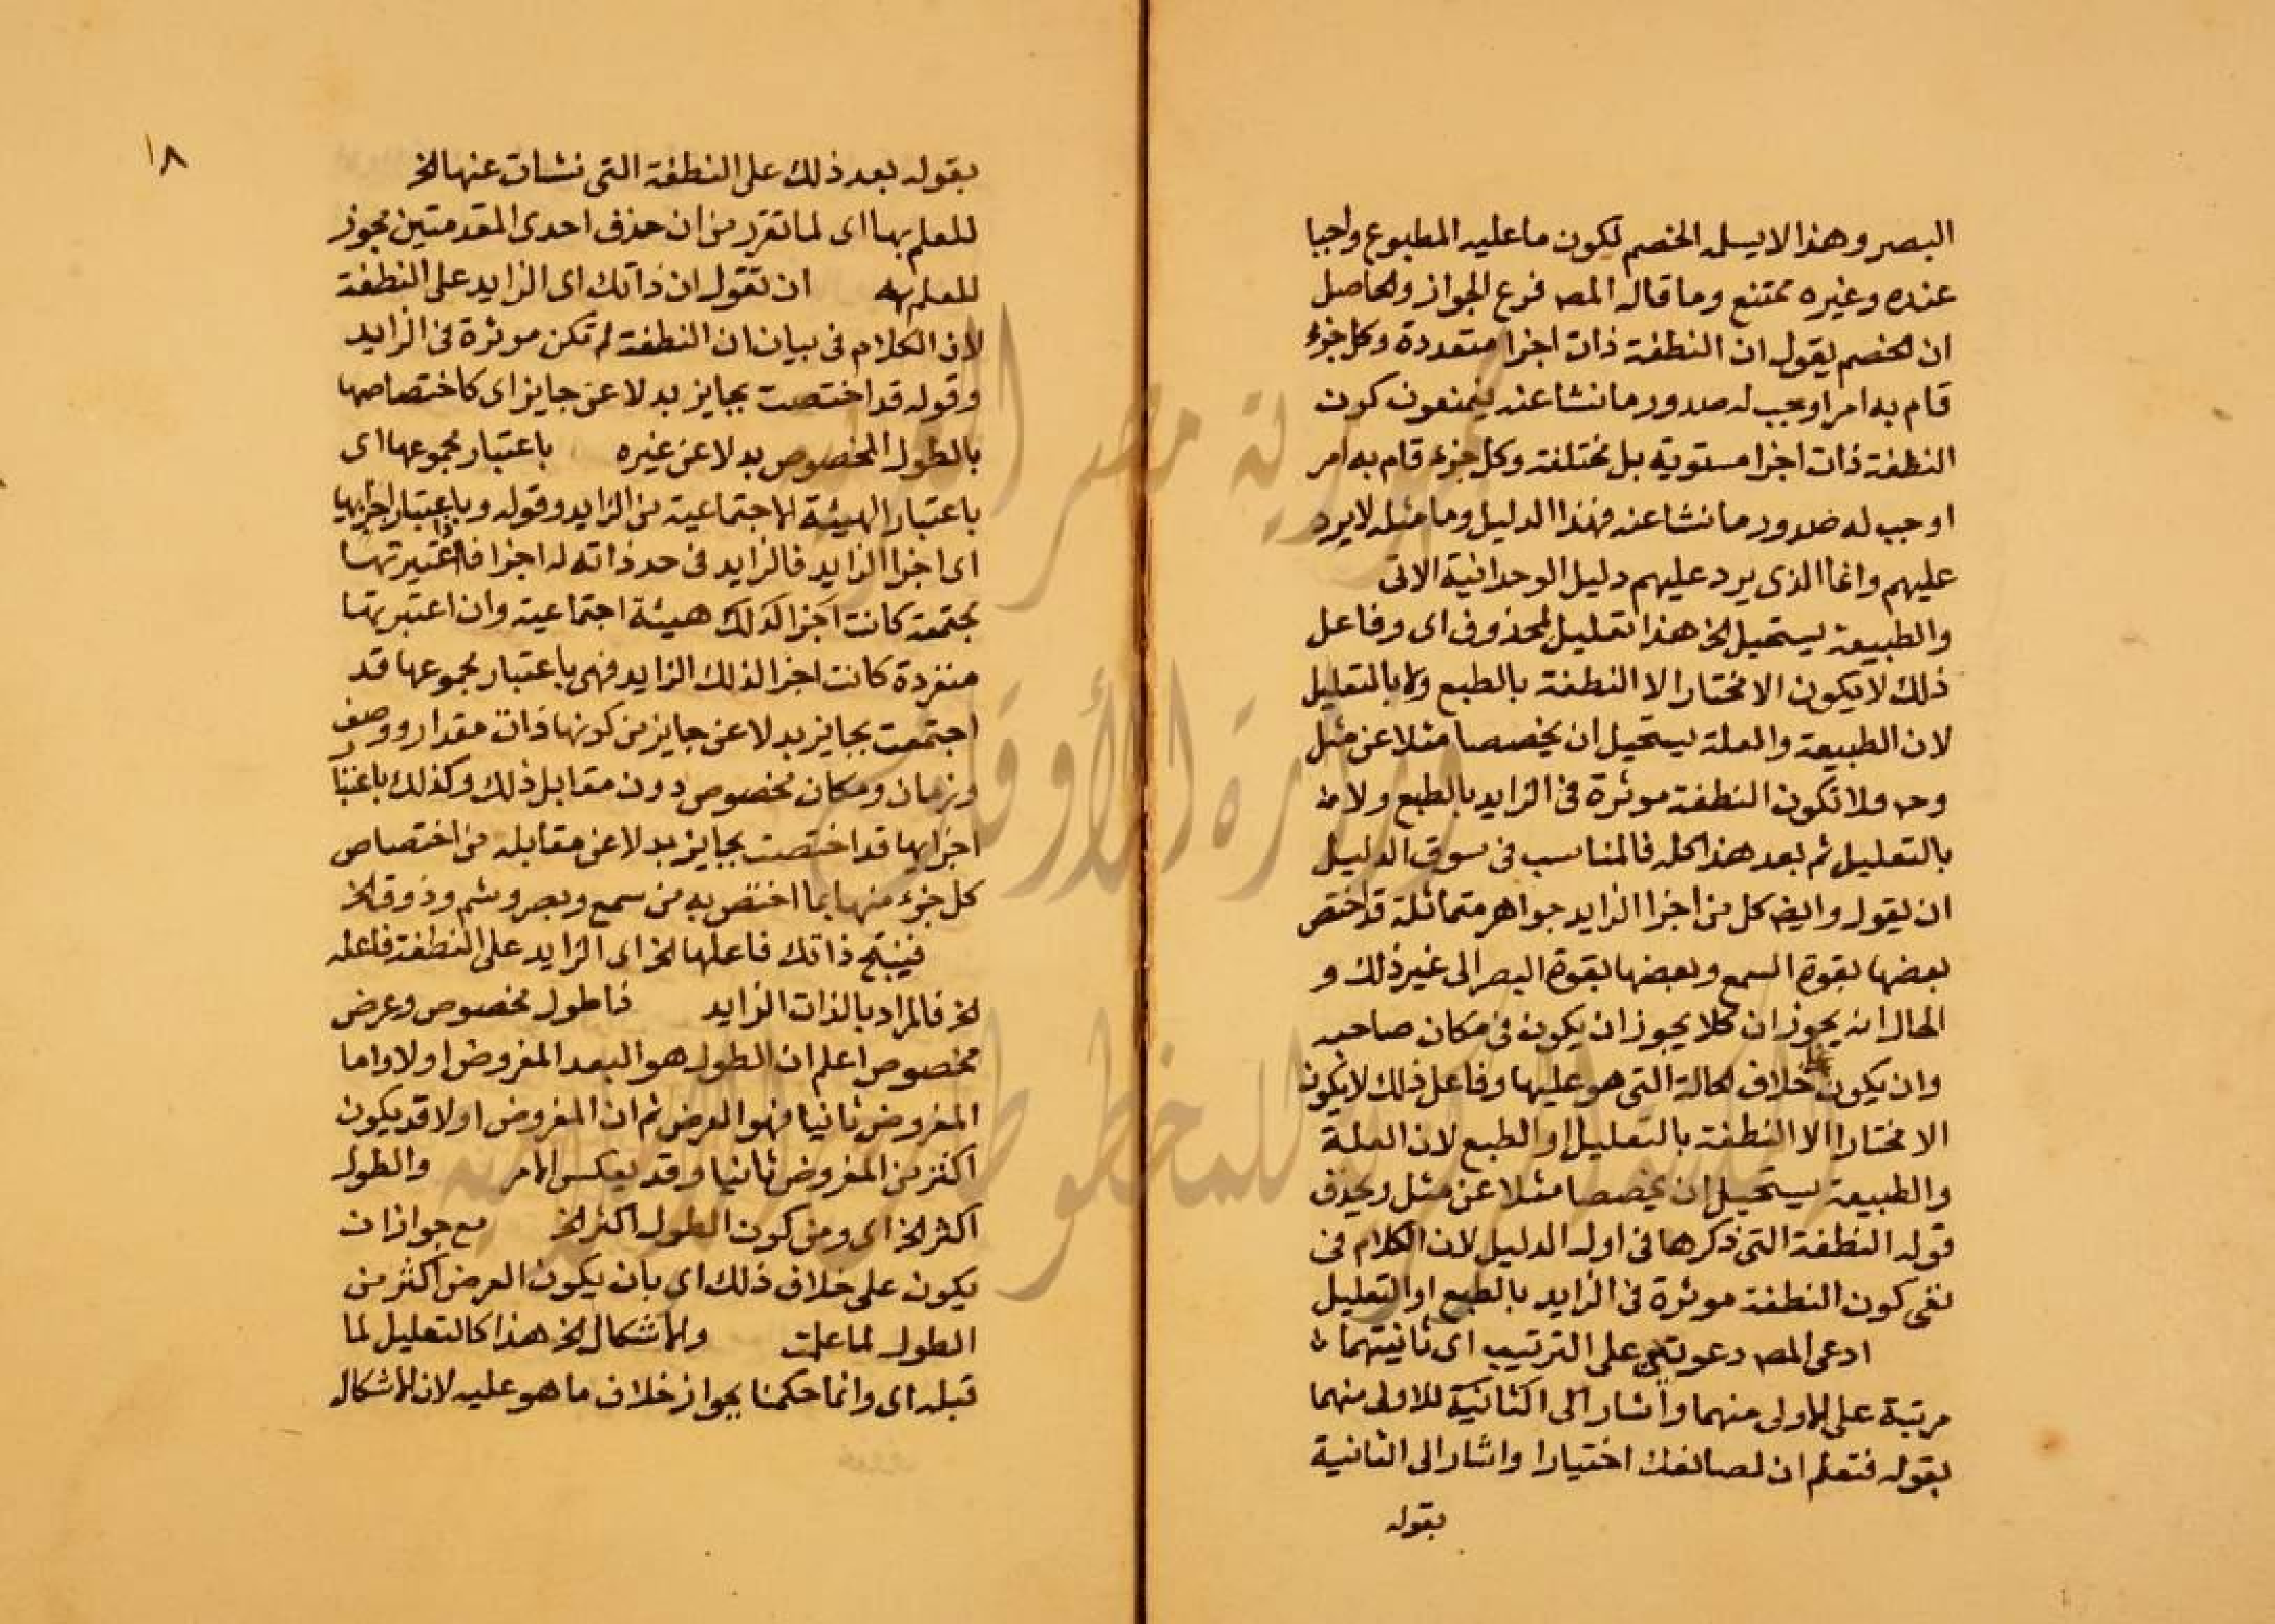 البصر وهذا لا يسلمه الخصم لكون ما عليه المطبوع واجبا
عنده وغيره ممتنع وما قاله المصـ فرع الجواز والحاصل
ان الخصم يقول ان النطفة ذات اجزا متعددة وكل جزء
قام به امر اوجب له صدور ما نشا عنه فيمنعون كون
النطفة ذات اجزا مستوية بل مختلفة وكل جزء قام به امر
اوجب له صدور ما نشا عنه فهذا الدليل وما مثله لا يرد
عليهم وانما الذي يرد عليهم دليل الوحدانية الاتي
والطبيعة يستحيل الخ هذا تعليل لمحذوف اى وفاعل
ذلك لا يكون الا مختارا لا النطفة بالطبع ولا بالتعليل
لان الطبيعة والعلة يستحيل ان يخصصا مثلا عن مثل
وحـ ولا تكون النطفة موثرة في الزايد بالطبع ولا
بالتعليل ثم بعد هذا كله فالمناسب في سوق الدليل
ان يقول وايضـ كل من اجزا الزايد جواهر متماثلة قد اختص
بعضها بقوة السمع وبعضها بقوة البصر الى غير ذلك و
الحال انه يجوز ان كلا يجوز ان يكون في مكان صاحبه
وان يكون على خلاف الحالة التي هو عليها وفاعل ذلك لا يكون
الا مختارا لا النطفة بالتعليل او الطبع لان العلة
والطبيعة يستحيل ان يخصصا مثلا عن مثل ويحذف
قوله النطفة التي ذكرها في اول الدليل لان الكلام في
نفى كون النطفة موثرة في الزايد بالطبع او التعليل
ادعى المصـ دعوتين على الترتيب اى ثانيتهما
مرتبة على الاولى منهما واشار الى الثانية للاولى منهما
بقوله فتعلم ان لصانعك اختيارا واشار الى الثانية
بقوله
١٨
بقوله بعد ذلك على النطفة التي نشات عنها الخ
للعلم بها اى لما تقرر من ان حذف احدى المقدمتين يجوز
للعلم به ان تقول ان ذاتك اى الزايد على النطفة
لان الكلام في بيان ان النطفة لم تكن موثرة في الزايد
وقوله قد اختصت بجايز بدلا عن جايز اى كاختصاصها
بالطول المخصوص بدلا عن غيره باعتبار مجموعها اى
باعتبار الهيئة الاجتماعية من الزايد وقوله وباعتبار اجزايها
اى اجزا الزايد فالزايد في حد ذاته له اجزا فاذا اعتبرتها
مجتمعة كانت اجزا لذلك هيئة اجتماعية وان اعتبرتها
منفردة كانت اجزا لذلك الزايد فهى باعتبار مجموعها قد
اجتمعت بجايز بدلا عن جايز من كونها ذات مقدار ووصف
وزمان ومكان مخصوص دون مقابل ذلك وكذلك باعتبار
اجزايها قد اختصت بجايز بدلا عن مقابله من اختصاص
كل جزء منها بما اختص به من سمع وبصر وشم وذوق الخ
فينتج ذاتك فاعلها الخ اى الزايد على النطفة فاعله
الخ فالمراد بالذات الزايد فاطول مخصوص وعرض
مخصوص اعلم ان الطول هو البعد المفروض اولا واما
المفروض ثانيا فهو العرض ثم ان المفروض اولا قد يكون
اكثر من المفروض ثانيا وقد يعكس الامر والطول
اكثر الخ اى ومن كون الطول اكثر الخ مع جواز ان
يكون على خلاف ذلك اى بان يكون العرض اكثر من
الطول لما علمت والاشكال الخ هذا كالتعليل لما
قبله اى وانما حكمنا بجواز خلاف ما هو عليه لان الاشكال